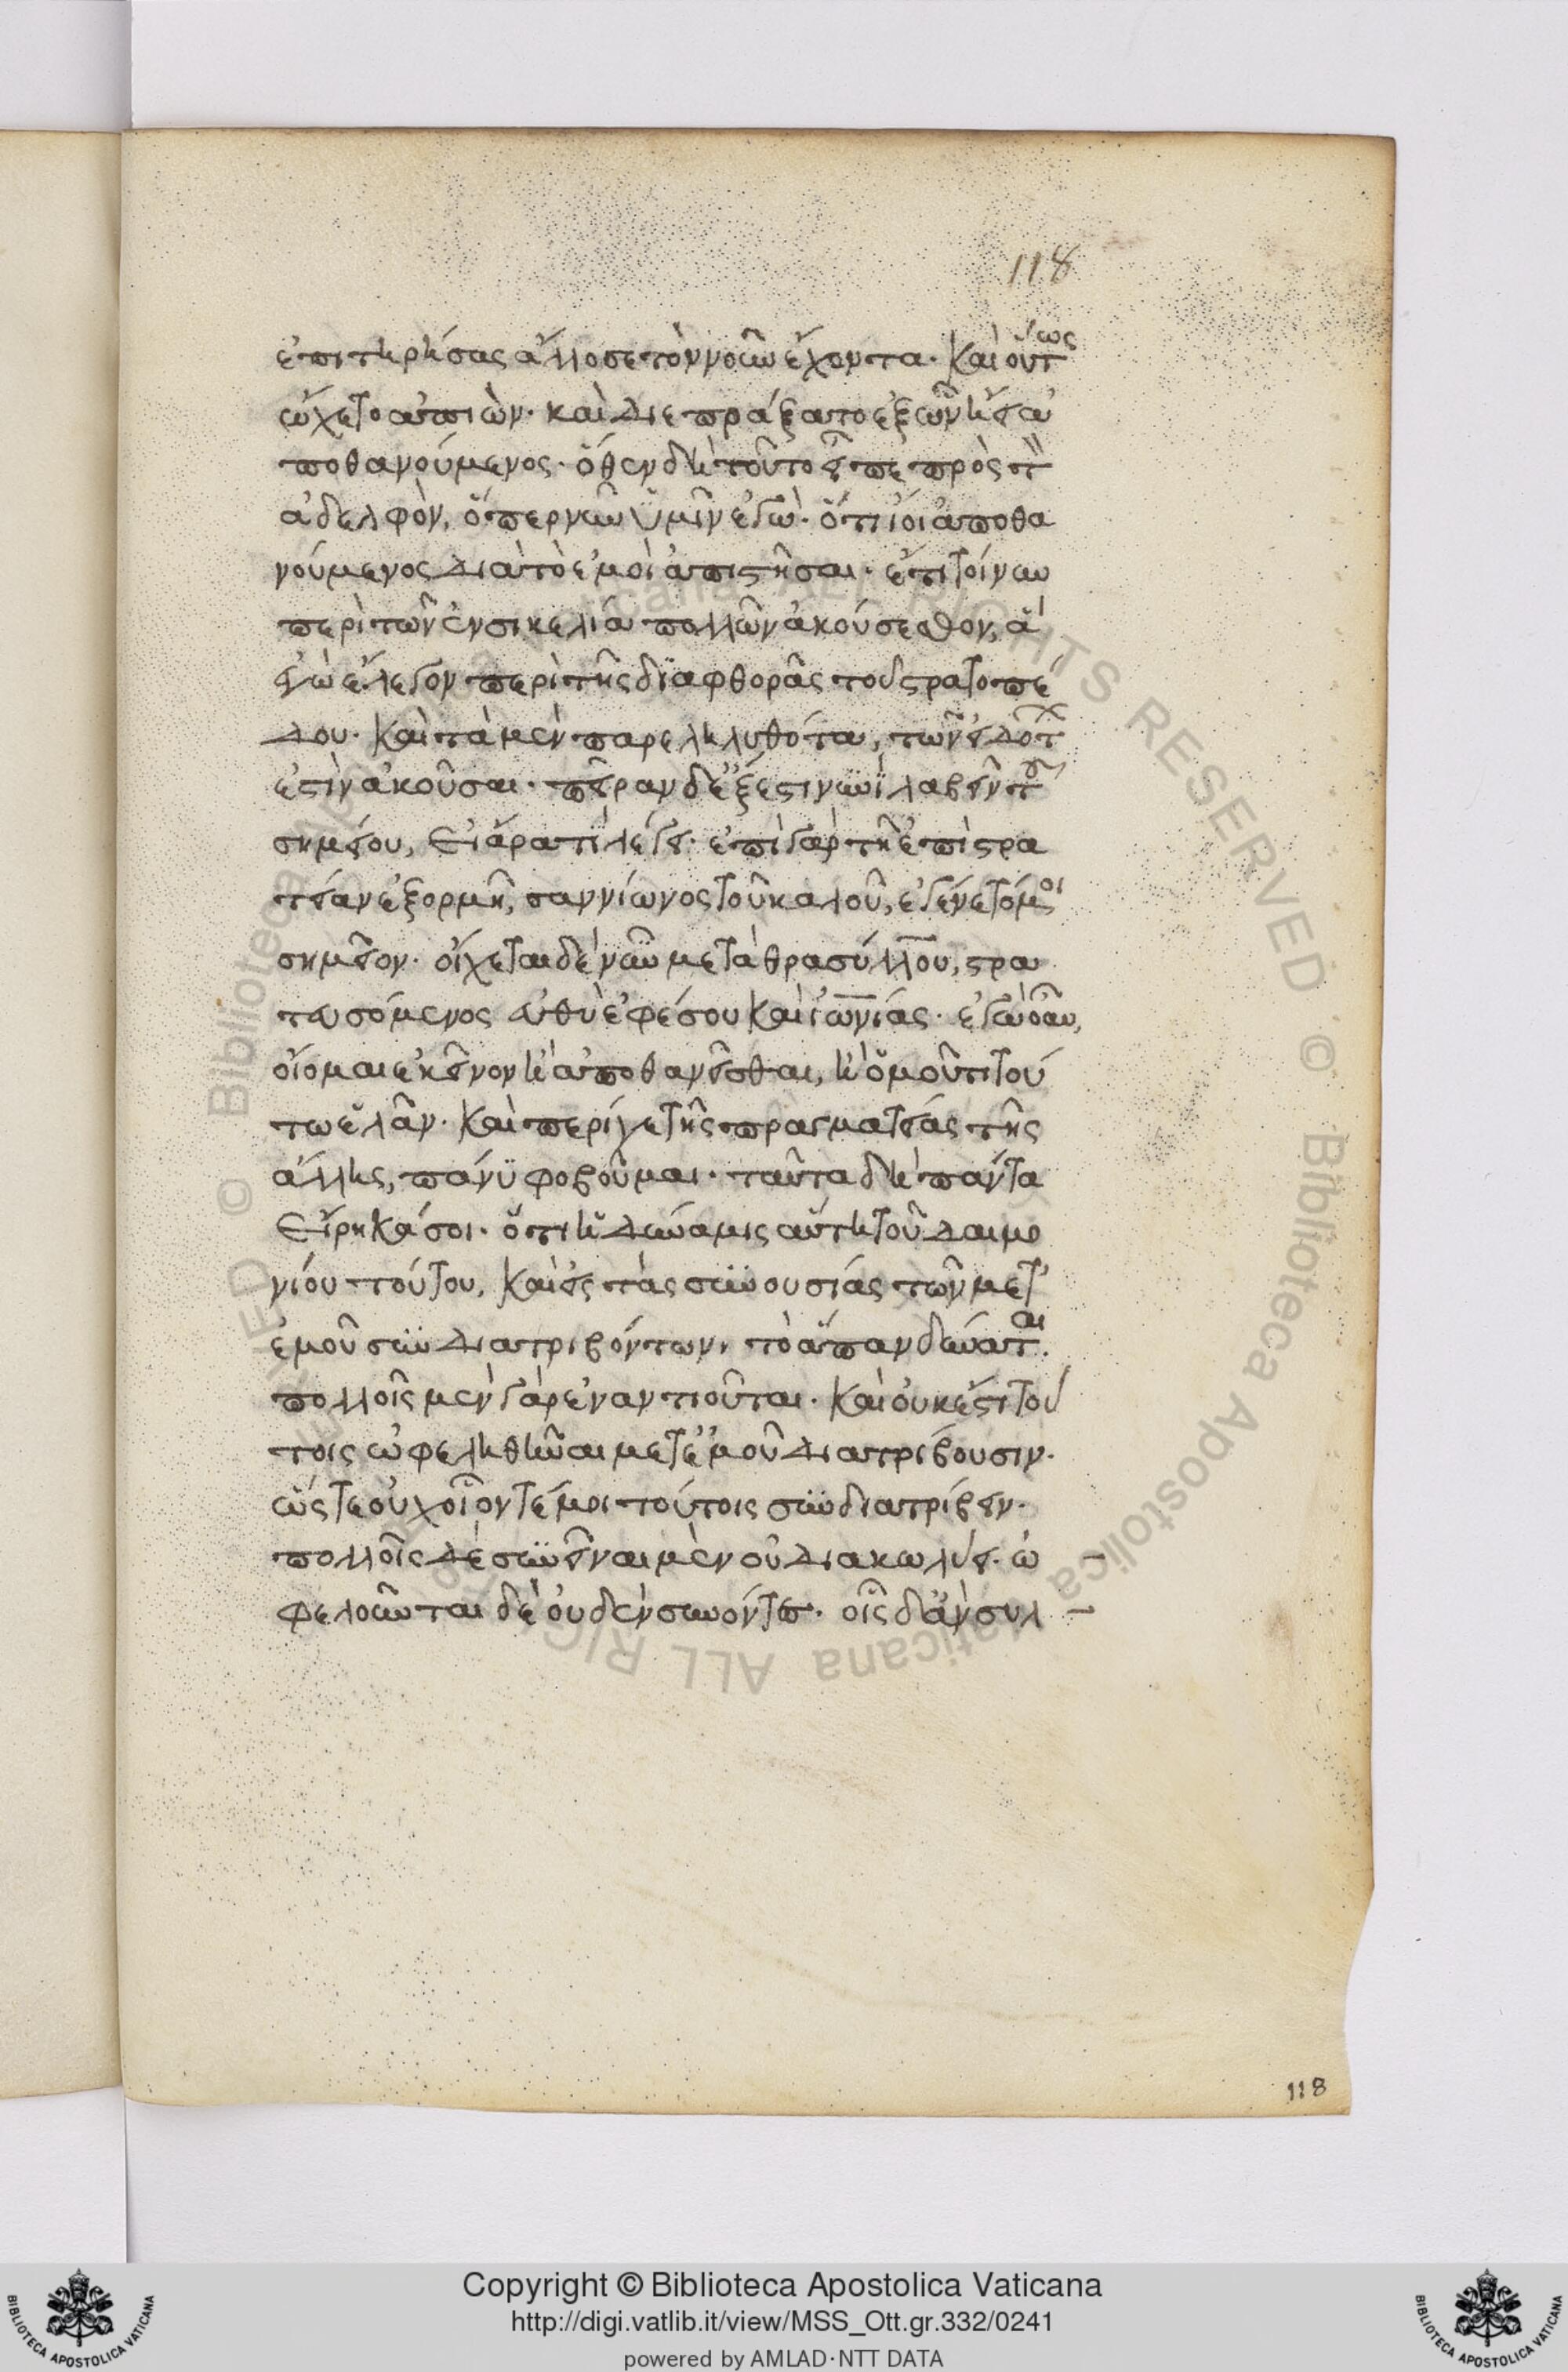 118
ἐπιτηρήσας ἄλλοσε τὸν νοῦν ἔχοντα. καὶ οὕτως
ᾤχετο ἀπιὼν. καὶ διεπράξατο ἐξ ὧν ᾔει ἀ
ποθανούμενος. ὅθεν δὴ τοῦτο εἶπε πρὸς τὸν
ἀδελφὸν, ὅπερ νῦν ὑμῖν ἐγὼ. ὅτι ἴοι ἀποθα
νούμενος διὰ τὸ ἐμοὶ ἀπιστῆσαι. ἔτι τοίνυν
περὶ τῶν ἐν σικελία πολλῶν ἀκούσεσθον, ἃ
ἐγὼ ἔλεγον περὶ τῆς διαφθορᾶς τοῦ στρατοπέ
δου. καὶ τὰ μὲν παρεληλυθότα, τῶν εἰδότων
ἔστιν ἀκοῦσαι. πεῖραν δ' ἔξεστι νυνὶ λαβεῖν τοῦ
σημείου, εἰ ἄρα τὶ λέγει. ἐπὶ γὰρ τῆ ἐπὶ στρα
τείαν ἐξορμῆ, σαννίωνος τοῦ καλοῦ, ἐγένετό μοι
σημεῖον. οἴχεται δὲ νῦν μετὰ θρασύλλου, στρα
τευσόμενος εὐθὺ ἐφέσου καὶ ἰωνίας. ἐγὼ οὖν,
οἴομαι ἐκεῖνον ἢ ἀποθανεῖσθαι, ἢ ὁμοῦ τι τού
τω ἐλᾶν. καὶ περί γε τῆς πραγματείας τῆς
ἄλλης, πάνυ φοβοῦμαι. ταῦτα δὴ πάντα
εἴρηκά σοι. ὅτι ἡ δύναμις αὕτη τοῦ δαιμο
νίου τούτου, καὶ εἰς τὰς συνουσίας τῶν μετ'
ἐμοῦ συνδιατριβόντων, τὸ ἅπαν δύναται.
πολλοῖς μὲν γὰρ ἐναντιοῦται. καὶ οὐκ ἔστι τού
τοις ὠφεληθῆναι μετ' ἐμοῦ διατρίβουσιν.
ὥστε οὐχ οἷόν τέ μοι τούτοις συνδιατρίβειν.
πολλοῖς δὲ συνεῖναι μὲν οὐ διακωλύει. ὠ
φελοῦνται δὲ οὐδὲν συνόντες. οἷς δ' ἂν συλ
118
Copyright © Biblioteca Apostolica Vaticana
http://digi.vatlib.it/view/MSS_Ott.gr.332/0241
powered by AMLAD·NTT DATA